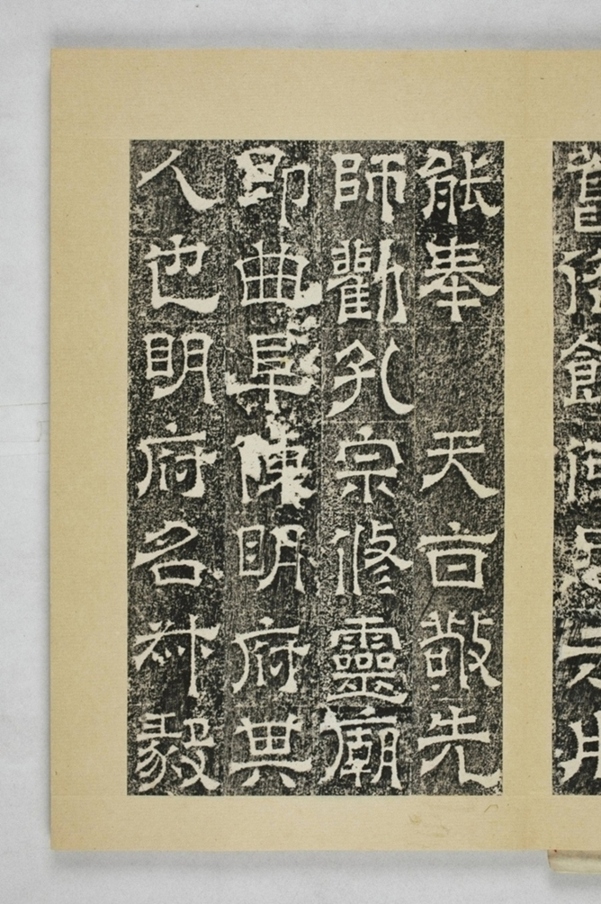 能奉　天旨敬先
師勸孔宗修靈廟
即曲阜陳明府其
人也明府名叔毅